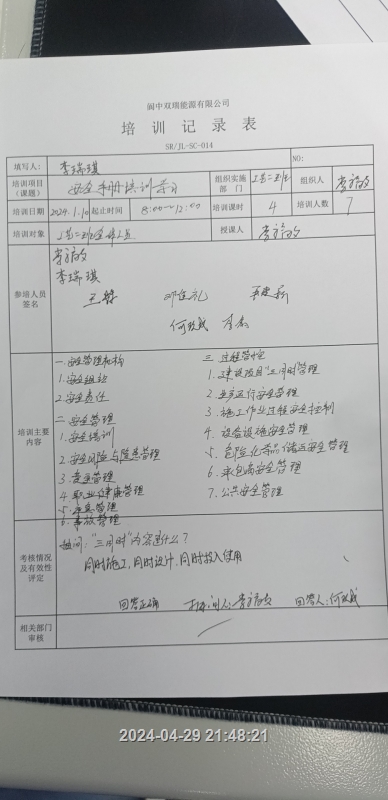 阆中双瑞能源有限公司
培训记录表
SR/JL-SC-014
填写人: 李瑞琪 NO:
培训项目(课题) 安全手册培训学习 组织实施部门 工艺二班 组织人
培训日期 2024.1.10 起止时间 8:00~12:00 培训课时 4 培训人数 7
培训对象 工艺二班全体人员 授课人
参培人员签名
李瑞琪
何政威
培训主要内容
一.安全管理机构
1.安全组织
2.安全责任
二.安全管理
1.安全培训
2.安全风险与隐患管理
3.
4.职业健康管理
5.应急管理
6.事故管理
三.过程管控
1.建设项目"三同时"管理
2.生产运行安全管理
3.施工作业过程安全控制
4.设备设施安全管理
5.危险化学品储运安全管理
6.承包商安全管理
7.公共安全管理
考核情况及有效性评定
提问:"三同时"内容是什么?
同时施工,同时设计,同时投入使用
回答正确 提问人: 回答人:何政威
相关部门审核
2024-04-29 21:48:21